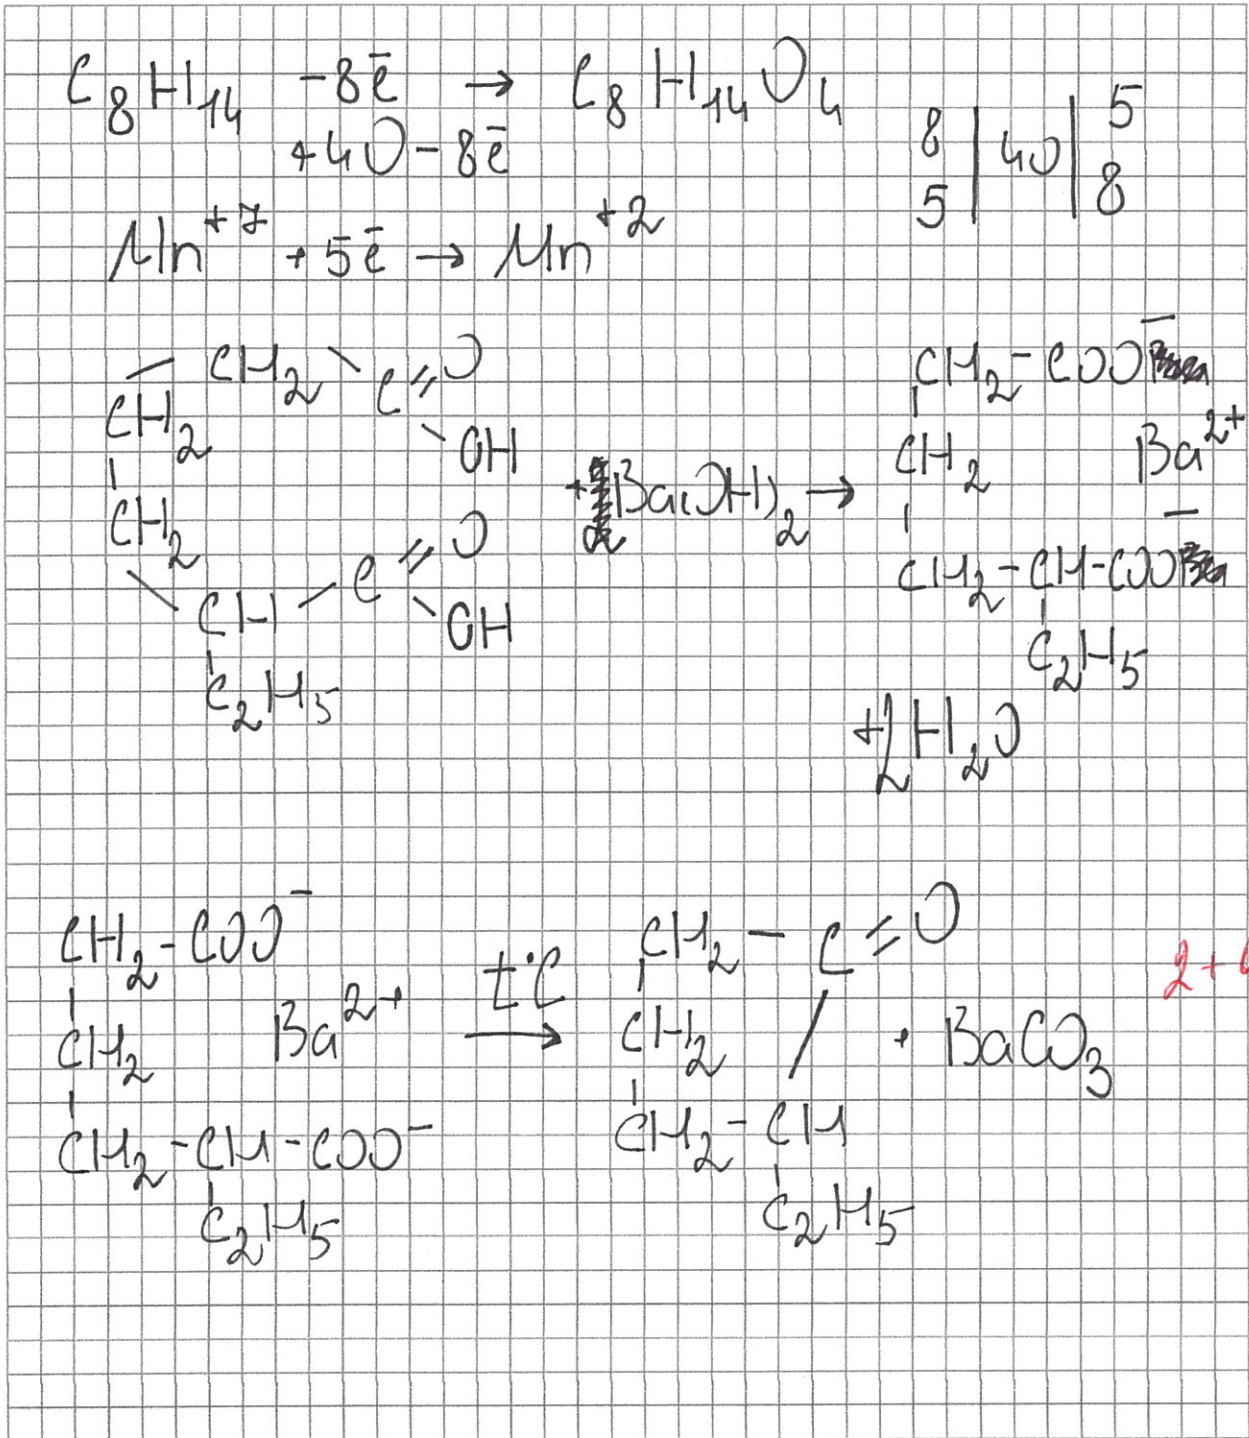 C₈H₁₄ -8ē → C₈H₁₄O₄
+4O-8ē
8 | 40 | 5
5 | | 8
Mn⁺⁷ +5ē → Mn⁺²
CH₂ - CH₂ - C=O
OH
CH₂
CH - C=O
OH
C₂H₅
+ Ba(OH)₂ →
CH₂-COO⁻
CH₂ Ba²⁺
CH₂-CH-COO⁻
C₂H₅
+2H₂O
CH₂-COO⁻
CH₂ Ba²⁺
CH₂-CH-COO⁻
C₂H₅
t°C →
CH₂-C=O
CH₂
CH₂-CH
C₂H₅
+ BaCO₃
2+